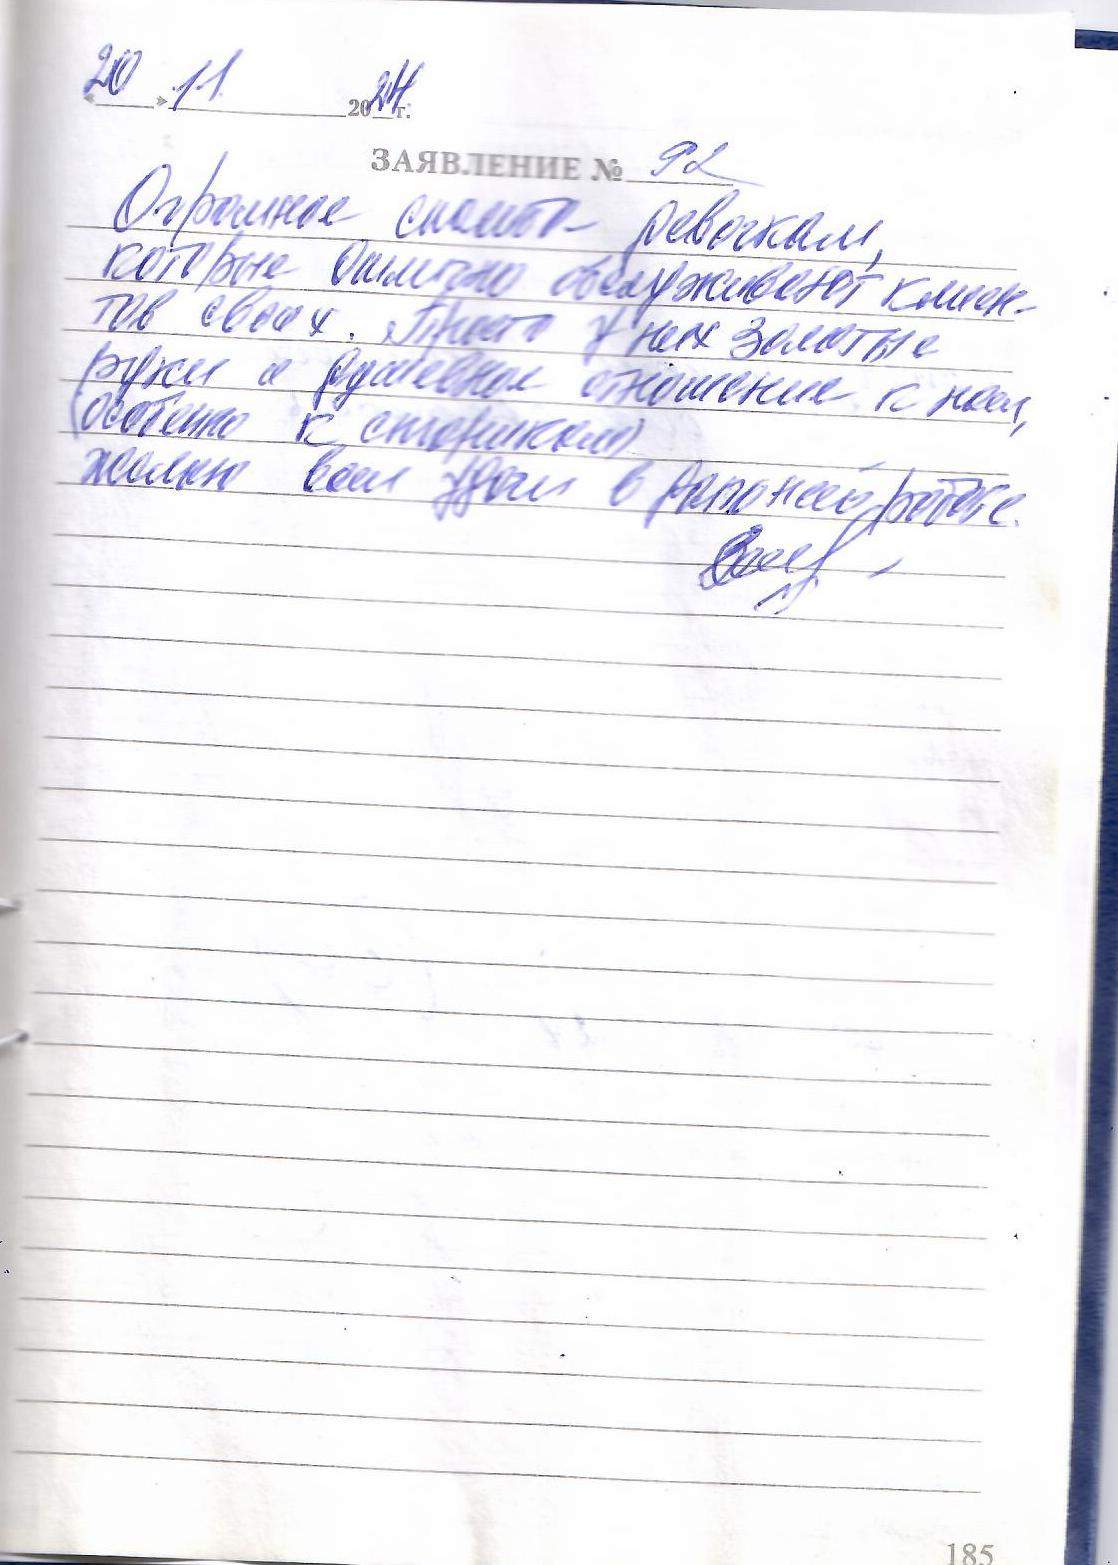 «20» 11 2024 г.
ЗАЯВЛЕНИЕ № 92
Огромное спасибо девочкам,
которые отлично обслуживают клиен-
тов своих. Просто у них золотые
руки и душевное отношение к нам,
(особенно к старикам)
желаю вам удачи в работе.
185